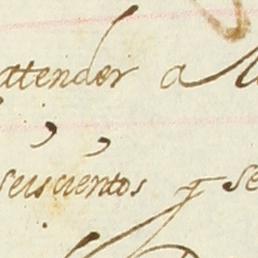 attender a
seiscientos y se